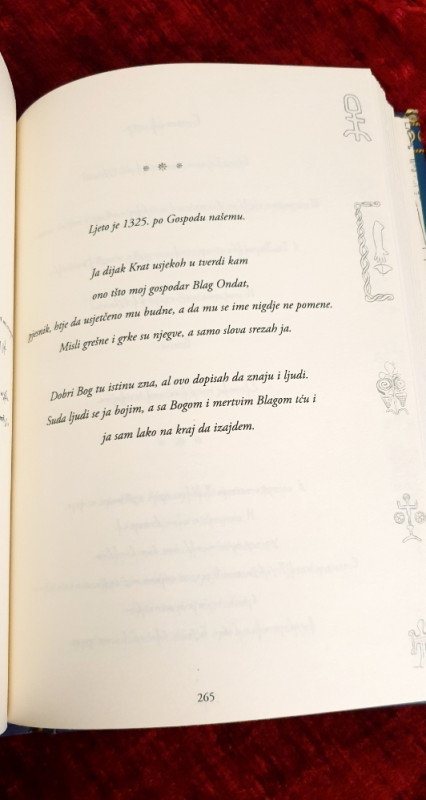 * * *
Ljeto je 1325. po Gospodu našemu.
Ja dijak Krat usjekoh u tverdi kam
ono tšto moj gospodar Blag Ondat,
pjesnik, htje da usjetčeno mu budne, a da mu se ime nigdje ne pomene.
Misli grešne i grke su njegve, a samo slova srezah ja.
Dobri Bog tu istinu zna, al ovo dopisah da znaju i ljudi.
Suda ljudi se ja bojim, a sa Bogom i mertvim Blagom tću i
ja sam lako na kraj da izajdem.
265